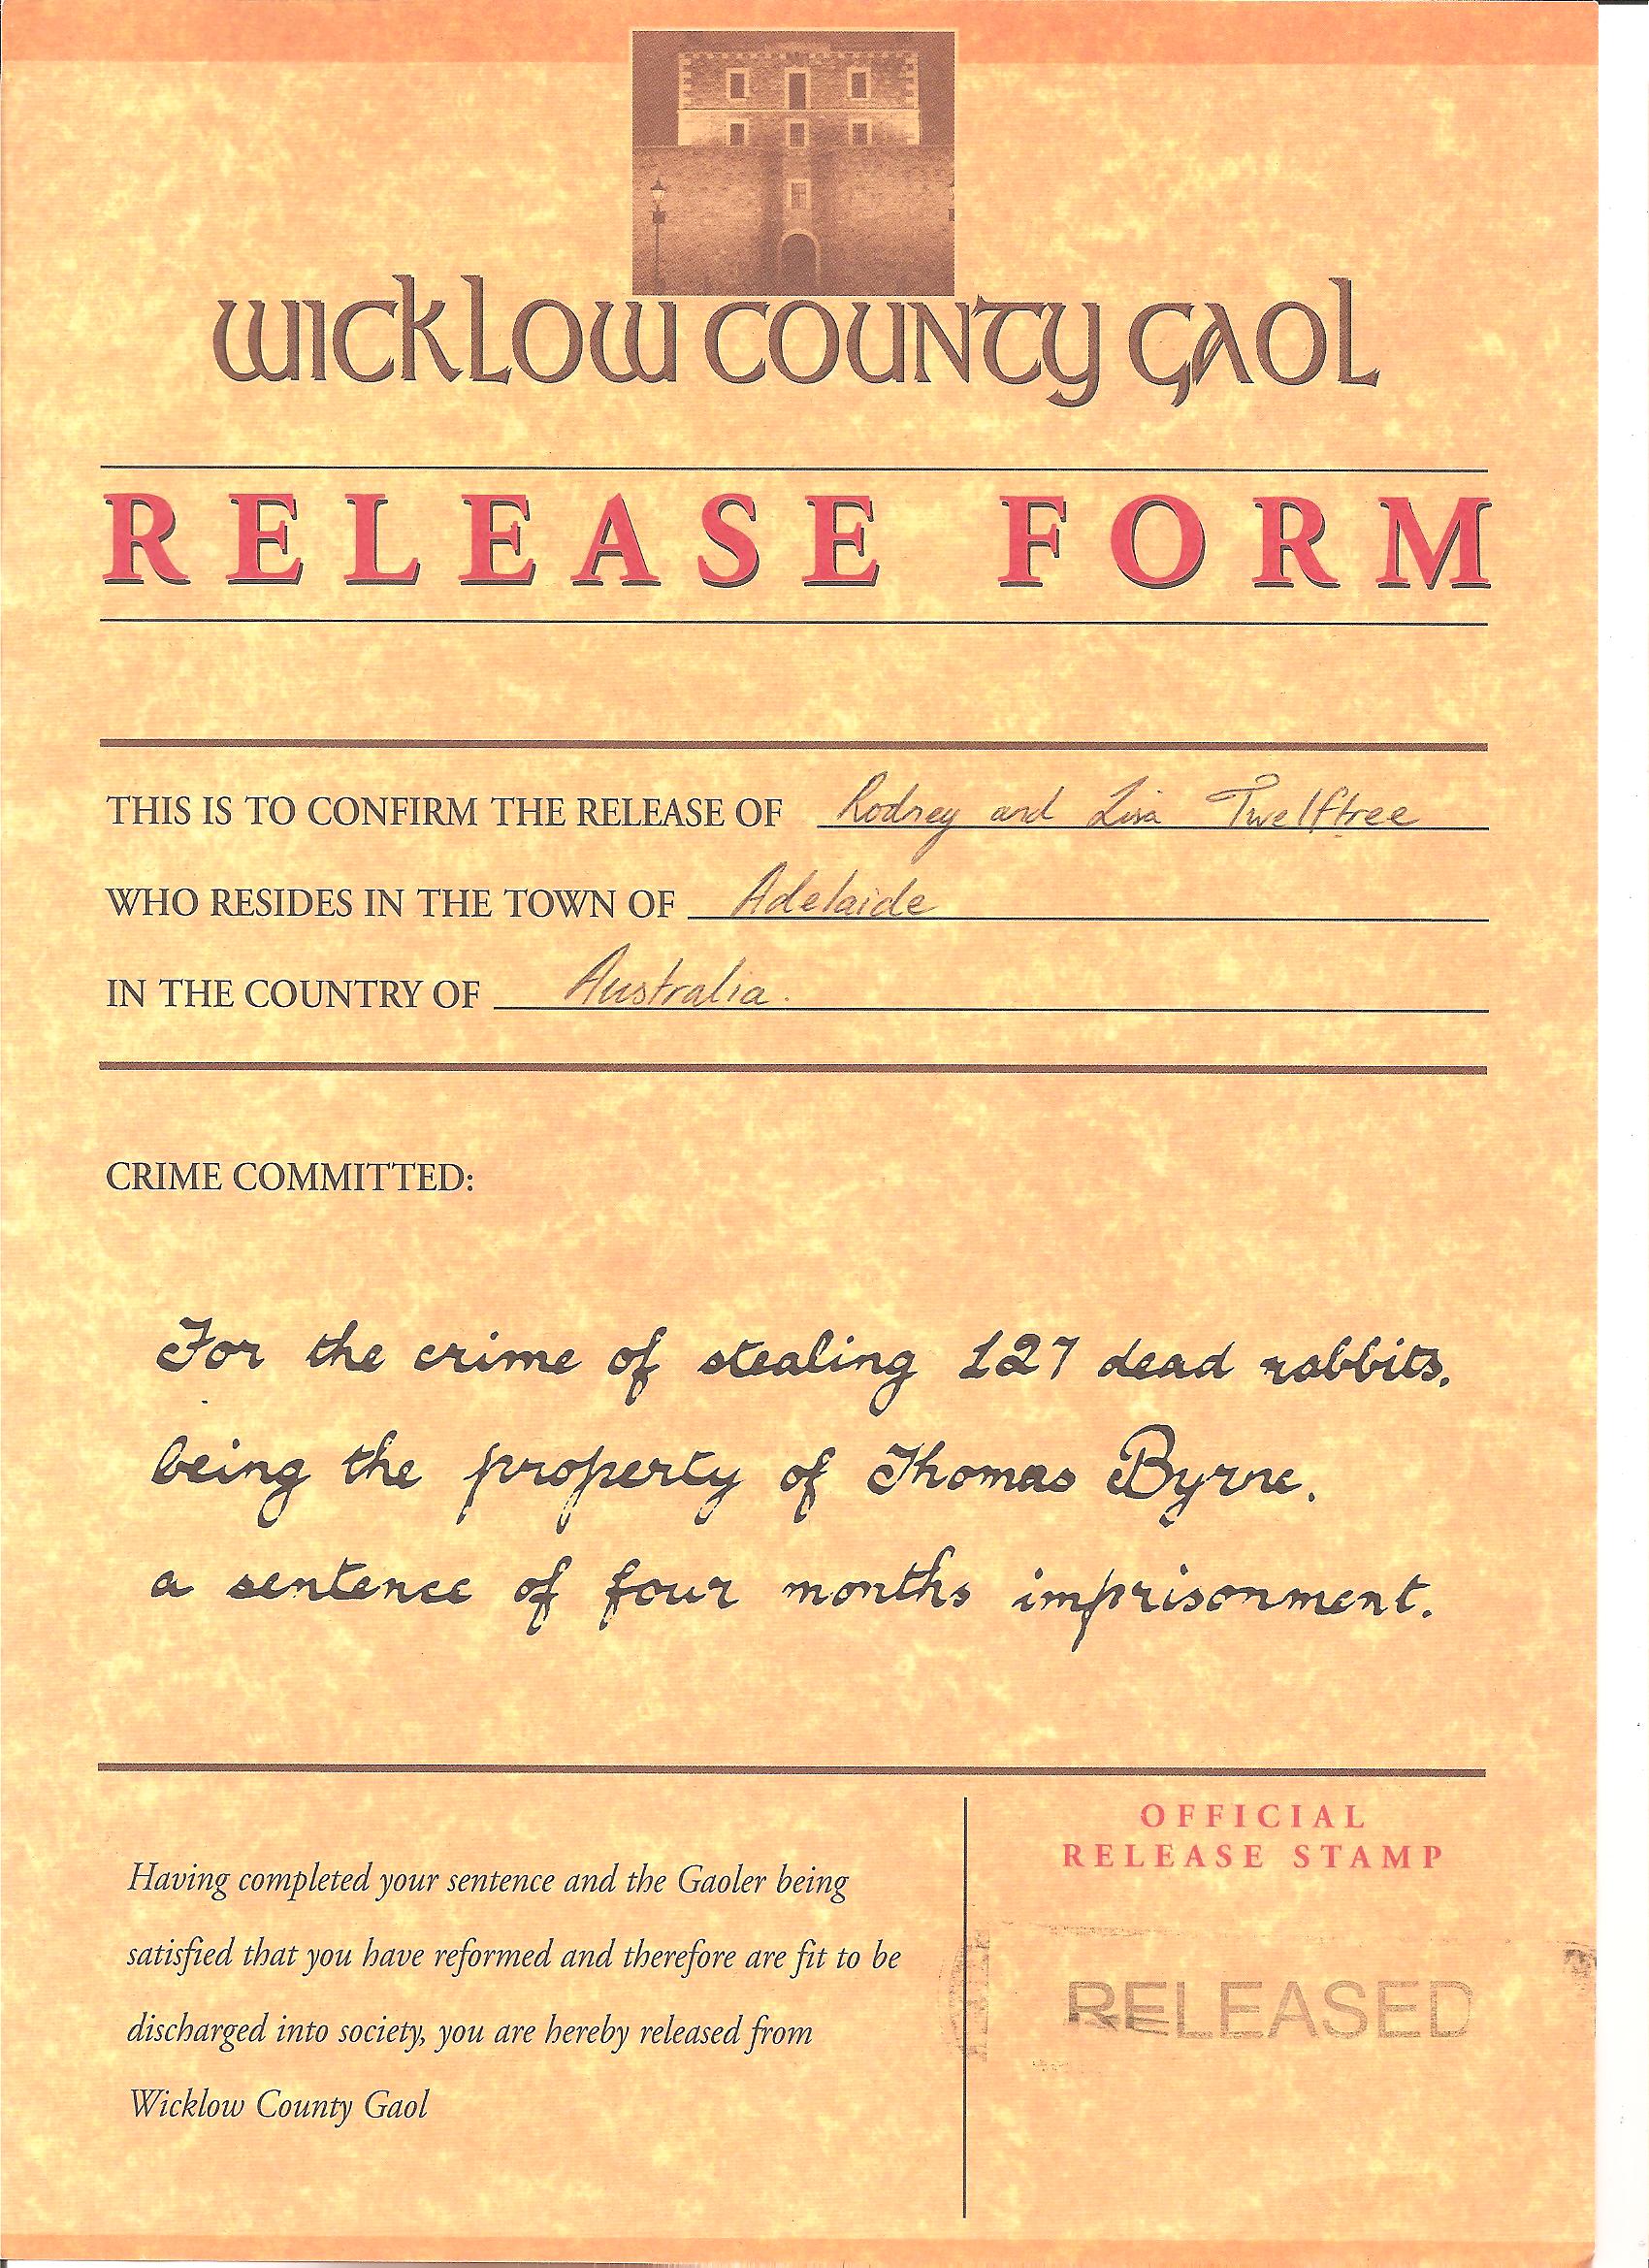 WICKLOW COUNTY GAOL
RELEASE FORM
THIS IS TO CONFIRM THE RELEASE OF Rodney and Lisa Twelftree
WHO RESIDES IN THE TOWN OF Adelaide
IN THE COUNTRY OF Australia.
CRIME COMMITTED:
For the crime of stealing 127 dead rabbits,
being the property of Thomas Byrne.
a sentence of four months imprisonment.
Having completed your sentence and the Gaoler being
satisfied that you have reformed and therefore are fit to be
discharged into society, you are hereby released from
Wicklow County Gaol
OFFICIAL
RELEASE STAMP
RELEASED